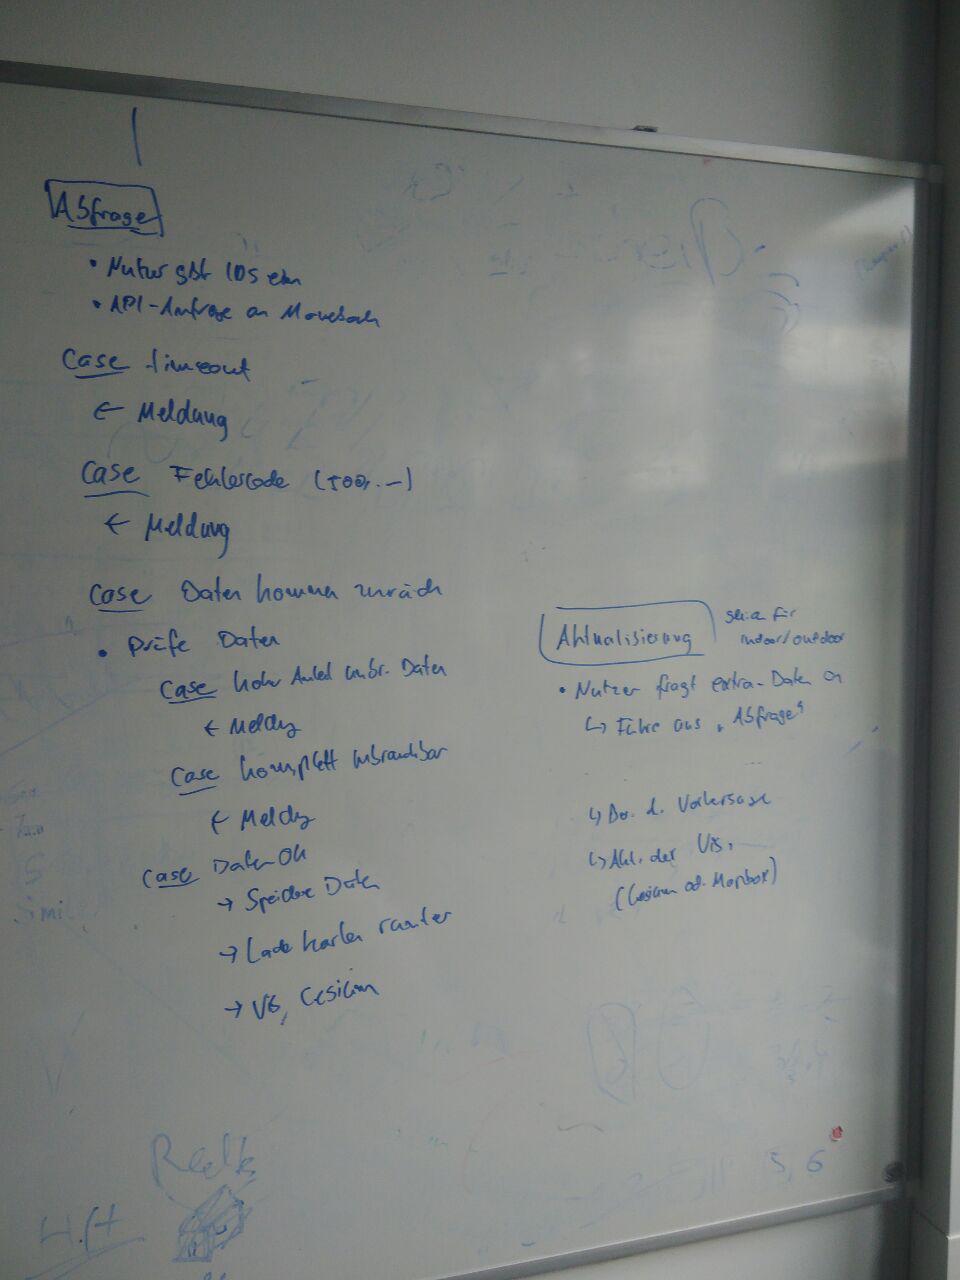 Abfrage
• Nutzer gibt IDs ein
• API-Anfrage an Movebank
Case timeout
← Meldung
Case Fehlercode (500, .–)
← Meldung
Case Daten kommen zurück
• Prüfe Daten
Case hoher Anteil unbr. Daten
← Meldg
Case komplett unbrauchbar
← Meldg
Case Daten Ok
→ Speichere Daten
→ Lade Karten runter
→ Vis, Cesium
Aktualisierung
für
indoor/outdoor
• Nutzer fragt extra-Daten an
↳ Führe aus „Abfrage“
↳ d. Vorhersage
↳ Akt. der Vis.
(Cesium od. Mapbox)
5, 6